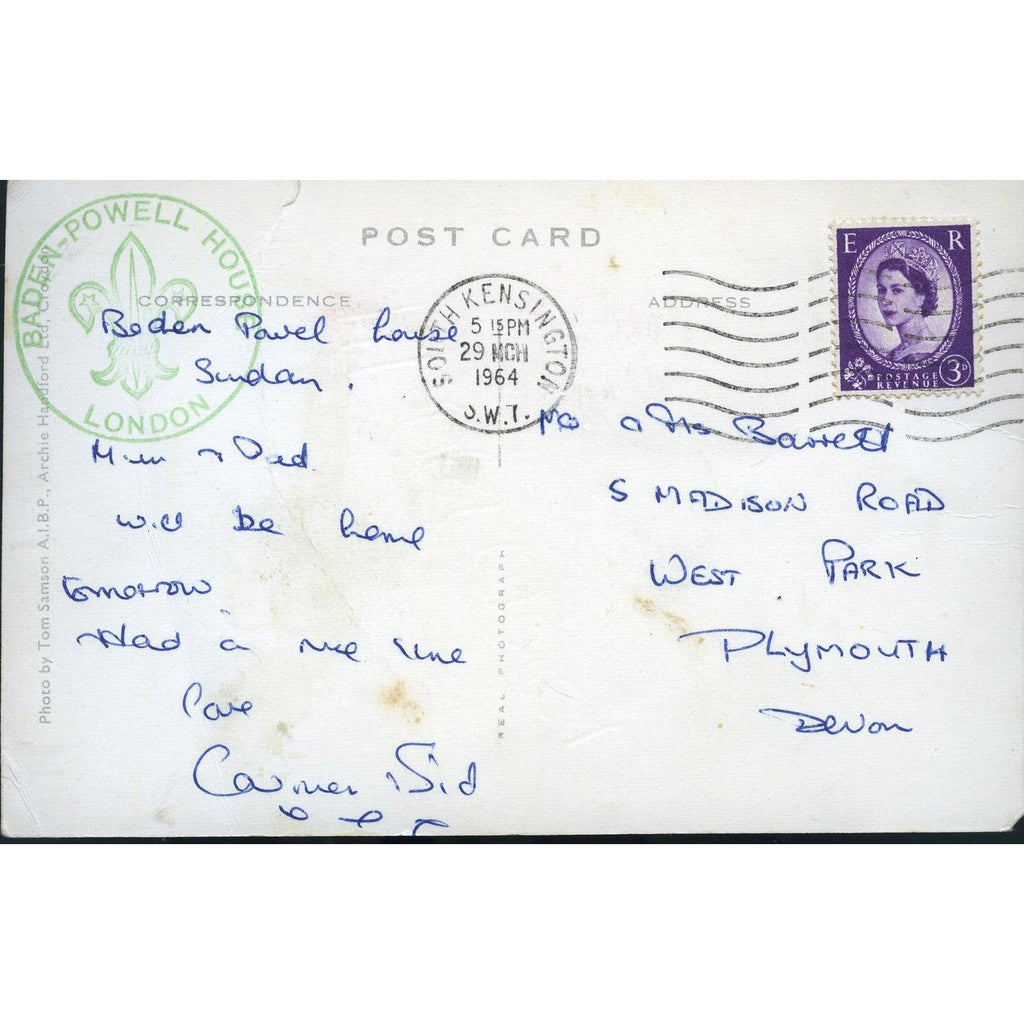 POST CARD
BADEN-POWELL HOUSE
LONDON
CORRESPONDENCE
ADDRESS
SOUTH KENSINGTON
5 15 PM
29 MCH
1964
S.W.7.
E R
POSTAGE
REVENUE
3D
Baden Powel house
Sunday.
Mum + Dad
will be home
tomorrow
Had a nice time
love
Sid
Barrett
5 MADISON ROAD
WEST PARK
PLYMOUTH
DEVON
REAL PHOTOGRAPH
Photo by Tom Samson A.I.B.P., Archie Handford Ltd, Croydon